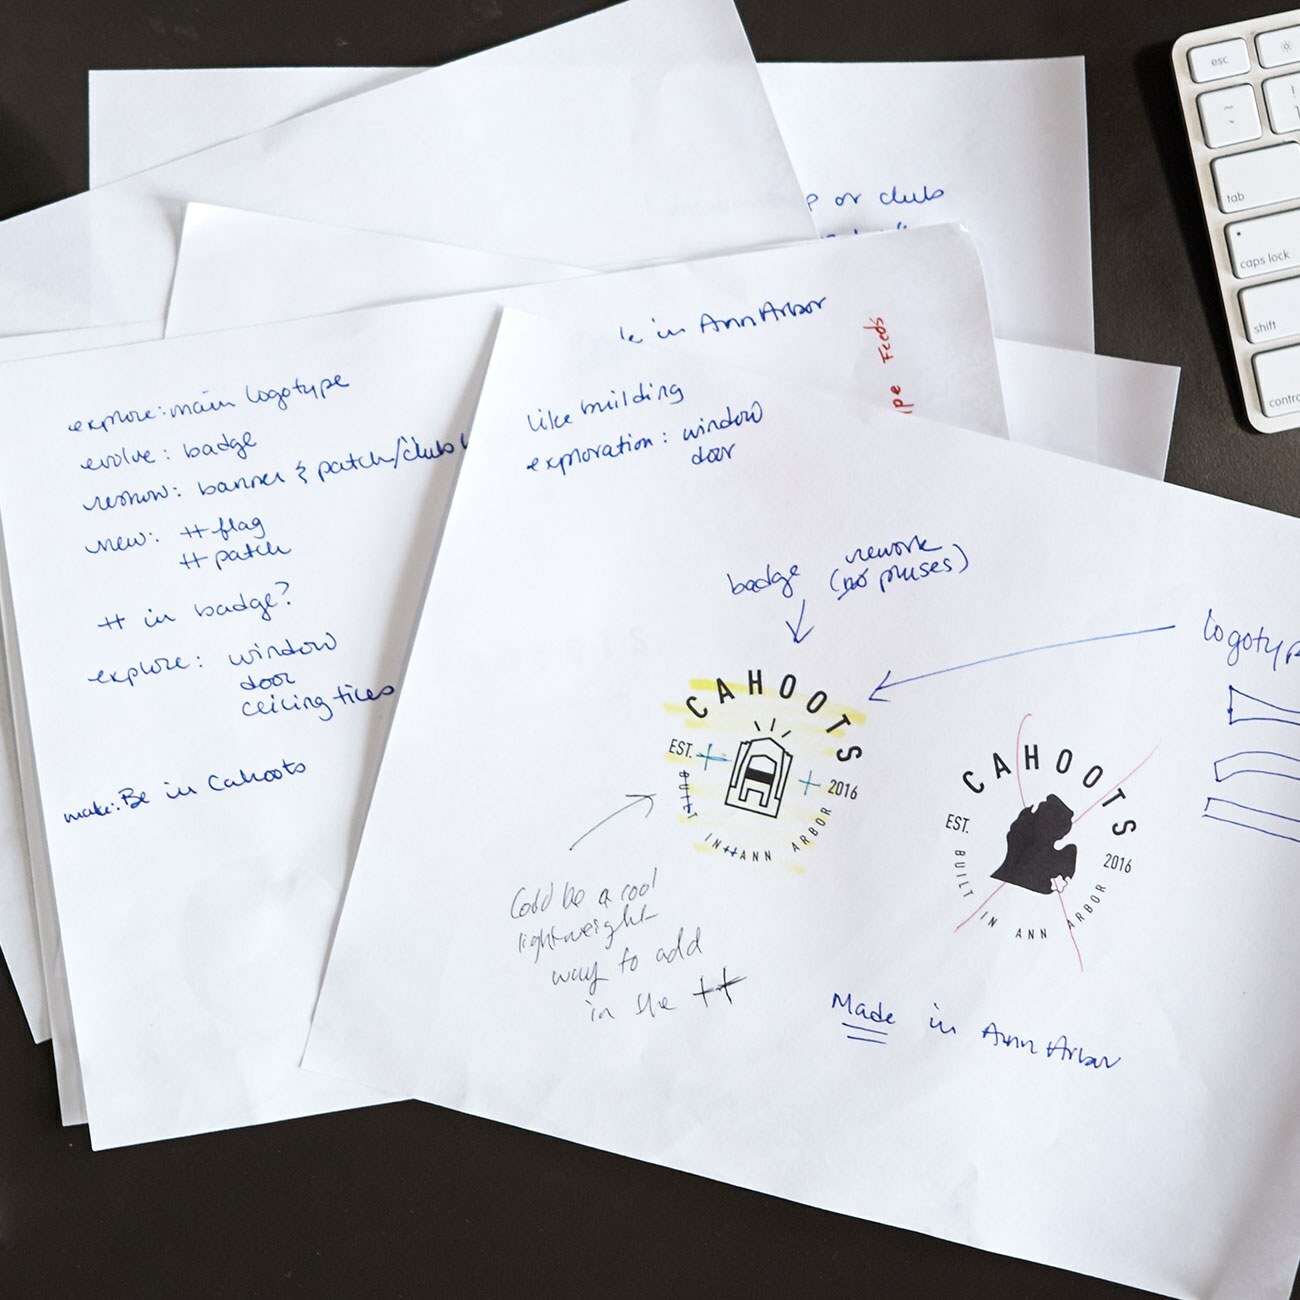 or club
in Ann Arbor
Feeds
explore: main logotype
evolve: badge
banner & patch/club
new: # flag
# patch
# in badge?
explore: window
door
ceiling tiles
make: Be in Cahoots
like building
exploration: window
door
badge rework
(no pluses)
logotyp
CAHOOTS
EST. 2016
BUILT IN ANN ARBOR
Could be a cool
lightweight
way to add
in the ++
CAHOOTS
EST. 2016
BUILT IN ANN ARBOR
Made in Ann Arbor
esc
tab
caps lock
shift
contro